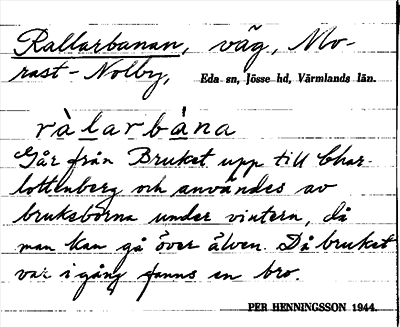 Rallarbanan, väg, Mo-
rast-Nolby, Eda sn, Jösse hd, Värmlands län.
ràlarbána
Går från Bruket upp till Char-
lottenberg och användes av
brukeborna under vintern, då
man kan gå över älven. Då bruket
var igång fanns en bro.
PER HENNINGSSON 1944.